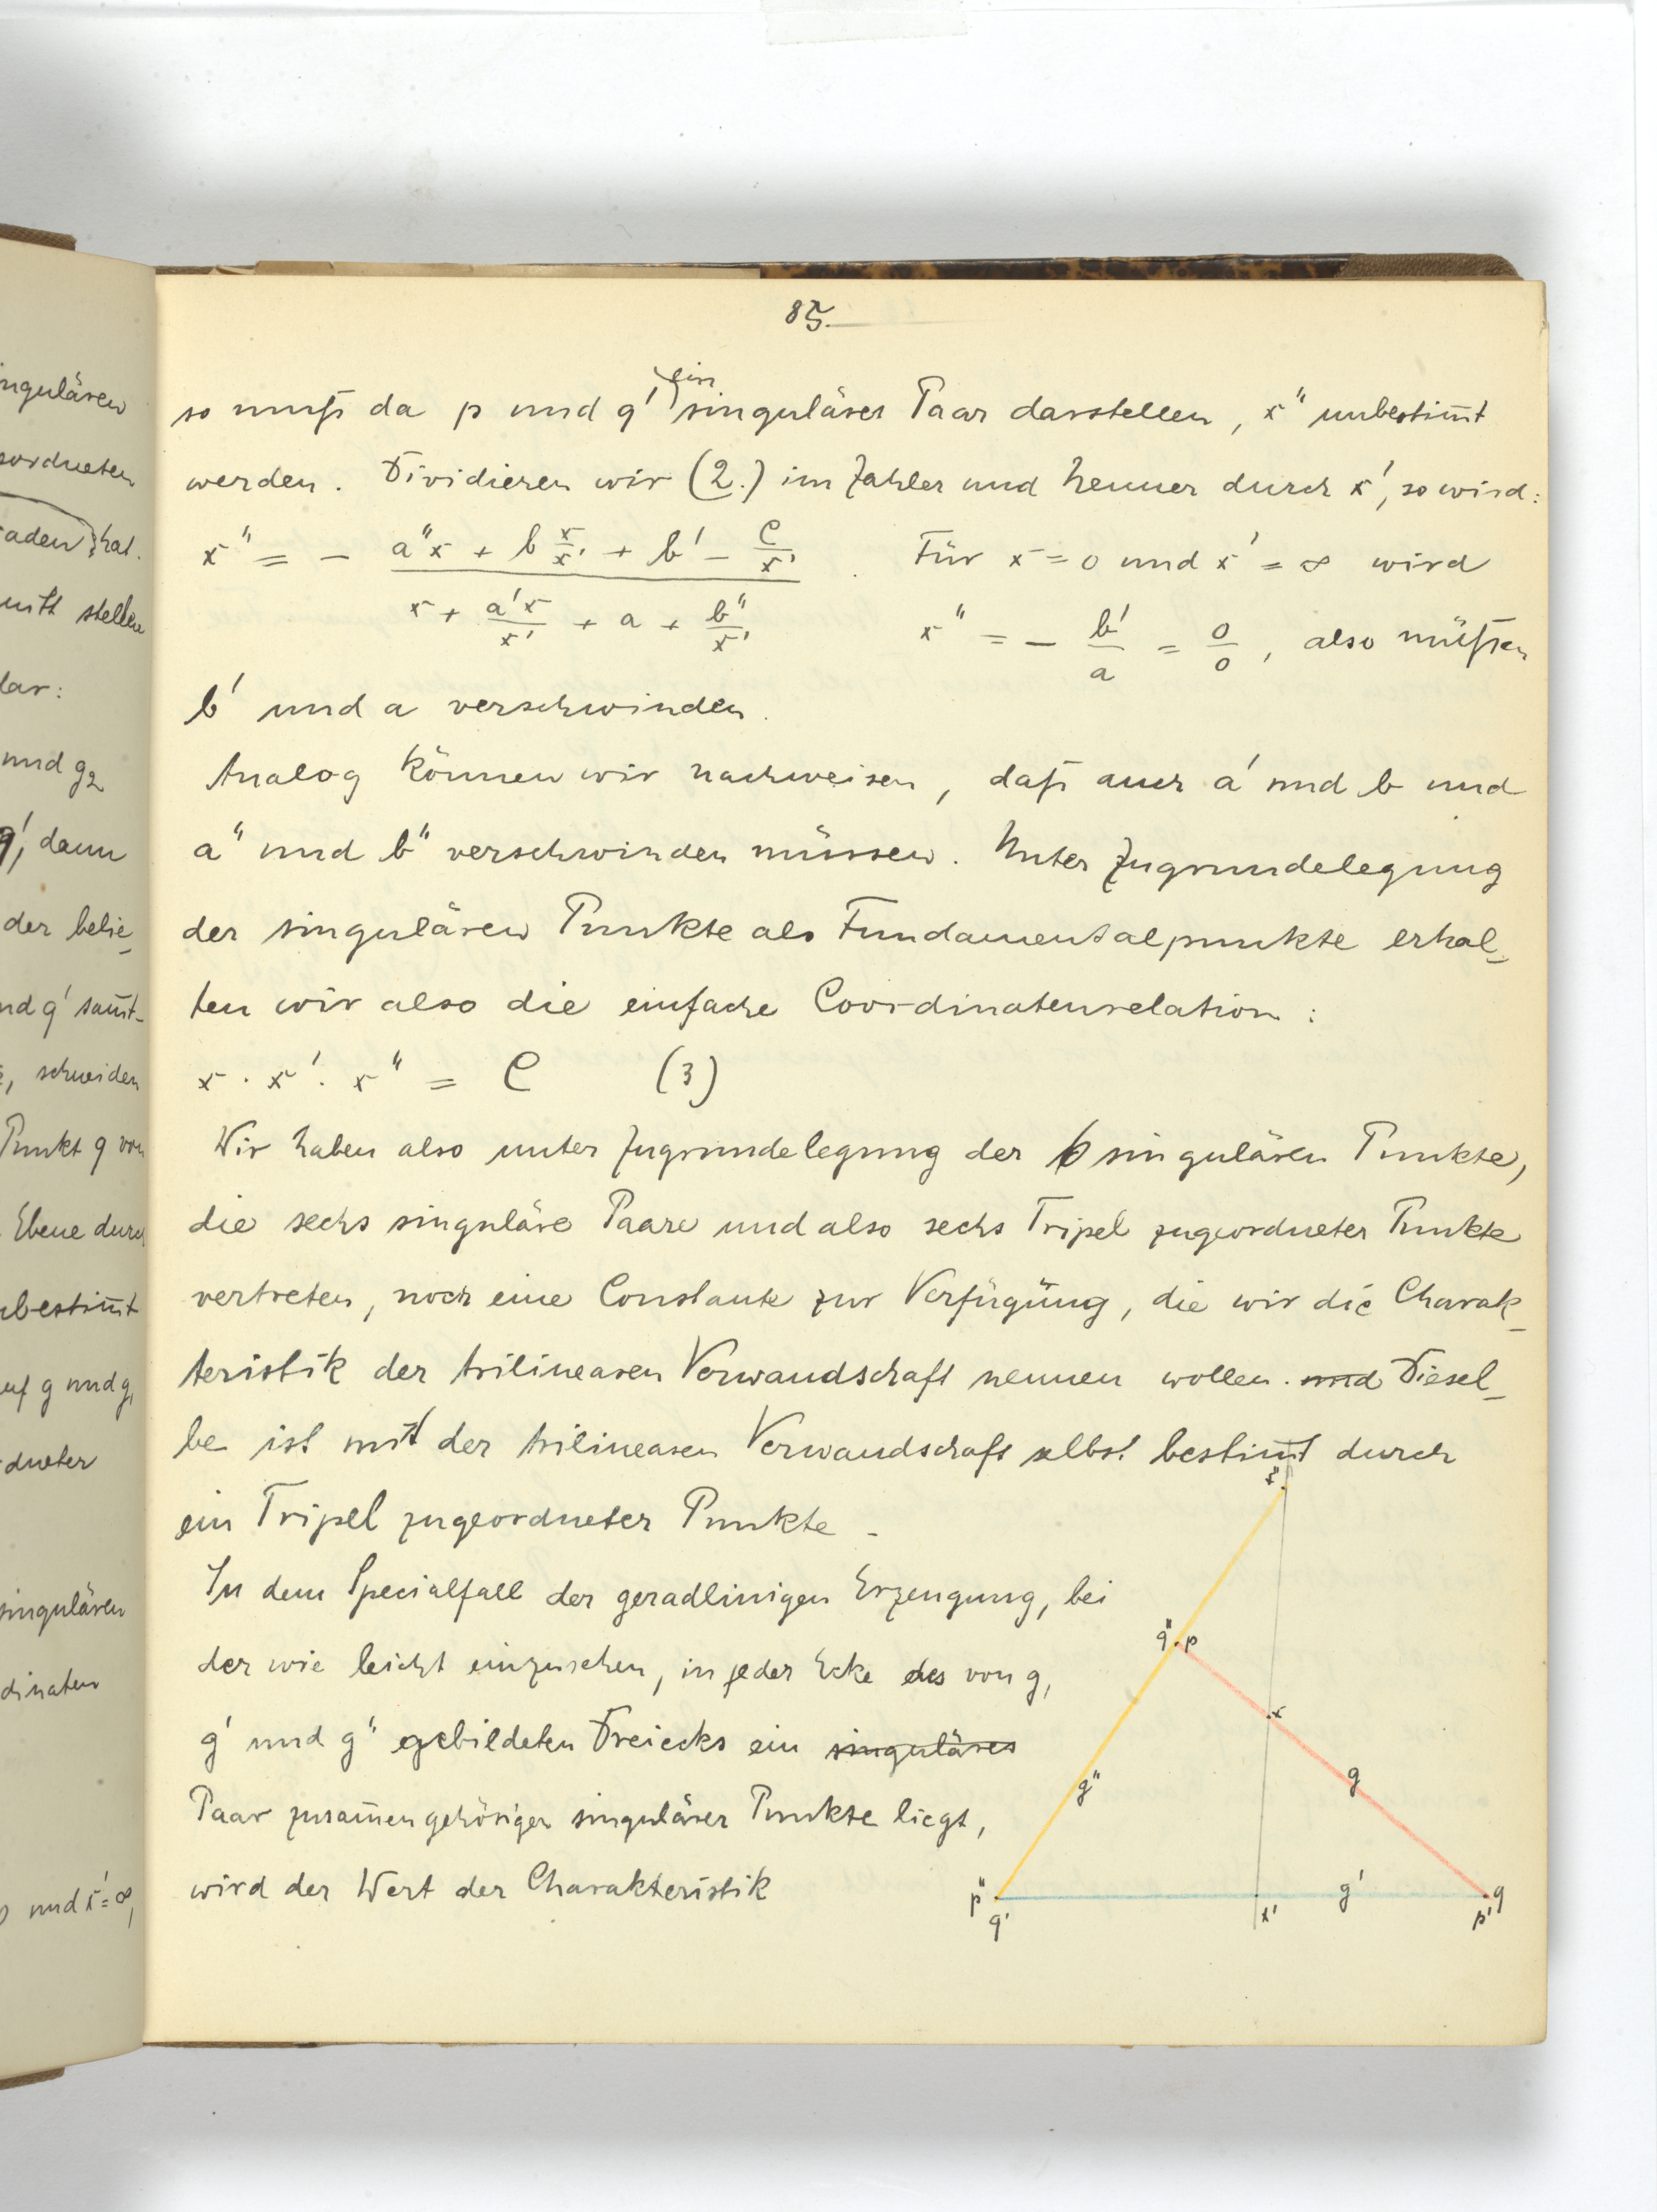 85.
so muß da p und q' ein singuläres Paar darstellen, x" unbestim̅t
werden. Dividieren wir (2.) im Zähler und Nenner durch x', so wird:
x" = - (a"x + b x/x' + b' - C/x') / (x + a'x/x' + a + b"/x') . Für x = 0 und x' = ∞ wird
x" = - b'/a = 0/0, also müßsen
b' und a verschwinden.
Analog können wir nachweisen, daß auch a' und b und
a" und b" verschwinden müssen. Unter Zugrundelegung
der singulären Punkte als Fundamentalpunkte erhal-
ten wir also die einfache Coordinatenrelation:
x · x' · x" = C (3)
Wir haben also unter Zugrundelegung der 6 singulären Punkte,
die sechs singuläre Paare und also sechs Tripel zugeordneter Punkte
vertreten, noch eine Constante zur Verfügung, die wir die Charak-
teristik der trilinearen Verwandschaft nennen wollen. und Diesel-
be ist mit der trilinearen Verwandschaft selbst bestim̅t durch
ein Tripel zugeordneter Punkte.
In dem Specialfall der geradlinigen Erzeugung, bei
der wie leicht einzusehen, in jeder Ecke des von g,
g' und g" gebildeten Dreiecks ein singuläres
Paar zusam̅engehöriger singulärer Punkte liegt,
wird der Wert der Charakteristik
x"
q" p
x
g"
g
p"
q'
x'
g'
p' q
ingulären
eordneten
raden hat.
mitt stellen
lar:
und g2
q', dann
der belie-
nd q' sam̅t-
, schneiden
Punkt q von
Ebene durch
nbestim̅t
auf g und g,
dneter
singulären
dinaten
und x' = ∞,